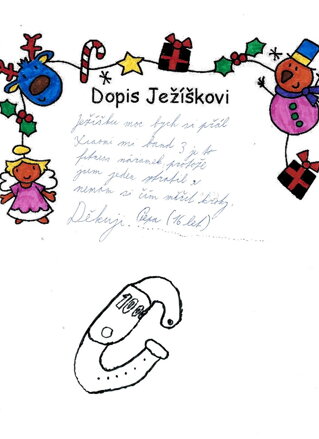 Dopis Ježíškovi
Ježíšku moc bych si přál
Xiaomi mi band 3 je to
fitness náramek protože
jsem jeden ztratil a
nemám si čím měřit kroky.
Děkuji. Pepa (16 let)
100%